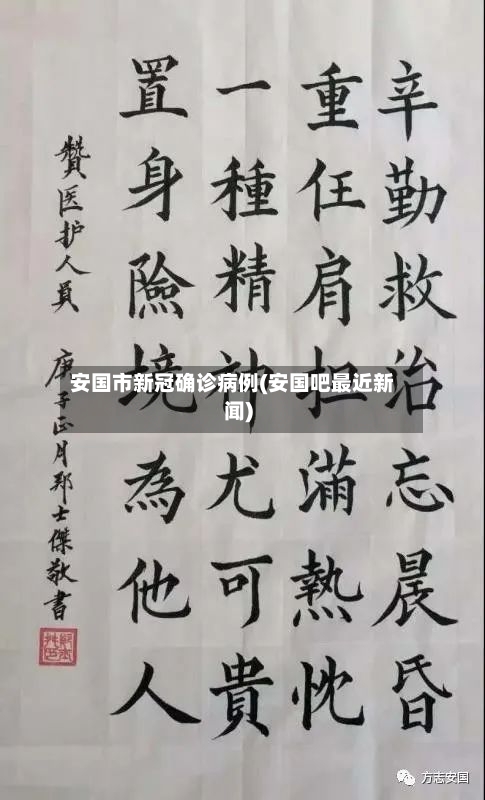 辛勤救治忘晨昏
重任肩担滿熱忱
一種精神尤可貴
置身險境為他人
贊医护人員 庚子正月郑士傑敬書
安国市新冠确诊病例(安国吧最近新
闻)
方志安国